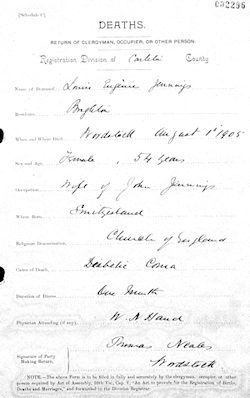 [Schedule C]
032296
DEATHS.
RETURN OF CLERGYMAN, OCCUPIER, OR OTHER PERSON.
Registration Division of Carleton County
Name of Deceased, Louise Eugenie Jennings
Residence, Brighton
When and Where Died, Woodstock August 1st 1905
Sex and Age, Female, 54 years
Occupation, Wife of John Jennings
Where Born, Switzerland
Religious Denomination, Church of England
Cause of Death, Diabetic Coma
Duration of Illness, One Month
Physician Attending (if any), W. N. Hand
Signature of Party Making Return, Thomas Neales
Woodstock
NOTE.—The above Form is to be filled in fully and accurately by the clergyman, occupier, or other
person required by Act of Assembly, 50th Vic., Cap. V, "An Act to provide for the Registration of Births,
Deaths and Marriages," and forwarded to the Division Registrar.